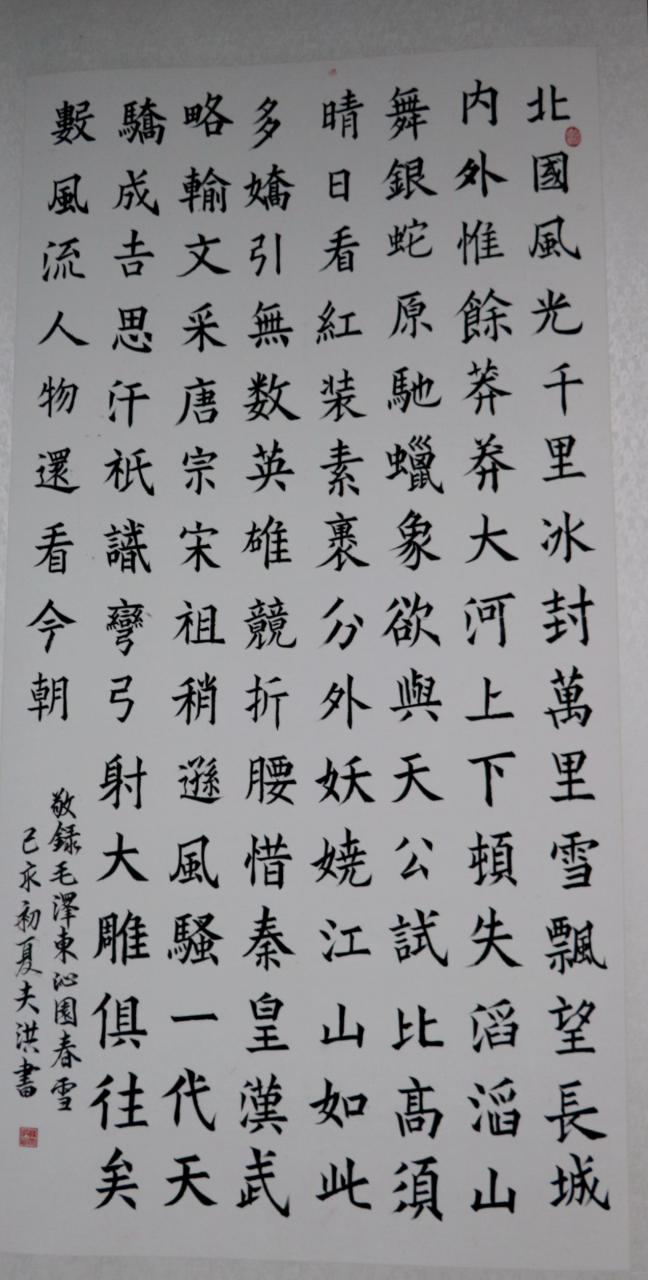 北國風光千里冰封萬里雪飄望長城
内外惟餘莽莽大河上下頓失滔滔山
舞銀蛇原馳蠟象欲與天公試比高須
晴日看紅装素裹分外妖娆江山如此
多嬌引無数英雄競折腰惜秦皇漢武
略輸文采唐宗宋祖稍遜風騷一代天
驕成吉思汗祇識彎弓射大雕俱往矣
數風流人物還看今朝
敬録毛澤東沁園春雪
己亥初夏夫洪書